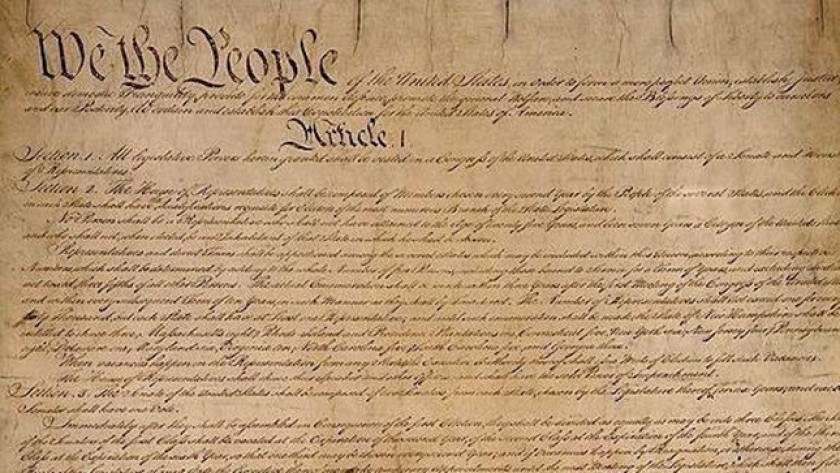 We the People of the United States, in order to form a more perfect Union, establish Justice,
insure domestic Tranquility, provide for the common defence, promote the general Welfare, and secure the Blessings of Liberty to ourselves
and our Posterity, do ordain and establish this Constitution for the United States of America.
Article. I.
Section. 1. All legislative Powers herein granted shall be vested in a Congress of the United States, which shall consist of a Senate and House
of Representatives.
Section. 2. The House of Representatives shall be composed of Members chosen every second Year by the People of the several States, and the
in each State shall have the Qualifications requisite for Electors of the most numerous Branch of the State Legislature.
No Person shall be a Representative who shall not have attained to the Age of twenty five Years, and been seven Years a Citizen of the United
and who shall not, when elected, be an Inhabitant of that State in which he shall be chosen.
Representatives and direct Taxes shall be apportioned among the several States which may be included within this Union, according to their respective
Numbers, which shall be determined by adding to the whole Number of free Persons, including those bound to Service for a Term of Years, and excluding
not taxed, three fifths of all other Persons. The actual Enumeration shall be made within three Years after the first Meeting of the Congress of the United
and within every subsequent Term of ten Years, in such Manner as they shall by Law direct. The Number of Representatives shall not exceed one for every
thirty Thousand, but each State shall have at Least one Representative; and until such enumeration shall be made, the State of New Hampshire shall be
entitled to chuse three, Massachusetts eight, Rhode Island and Providence Plantations one, Connecticut five, New York six, New Jersey four, Pennsylvania
eight, Delaware one, Maryland six, Virginia ten, North Carolina five, South Carolina five, and Georgia three.
When vacancies happen in the Representation from any State, the Executive Authority thereof shall issue Writs of Election to fill such Vacancies.
The House of Representatives shall chuse their Speaker and other Officers; and shall have the sole Power of Impeachment.
Section. 3. The Senate of the United States shall be composed of two Senators from each State, chosen by the Legislature thereof, for six Years; and each
Senator shall have one Vote.
Immediately after they shall be assembled in Consequence of the first Election, they shall be divided as equally as may be into three Classes. The
of the Senators of the first Class shall be vacated at the Expiration of the second Year, of the second Class at the Expiration of the fourth Year, and of the third
Class at the Expiration of the sixth Year, so that one third may be chosen every second Year; and if Vacancies happen by Resignation, or otherwise, during